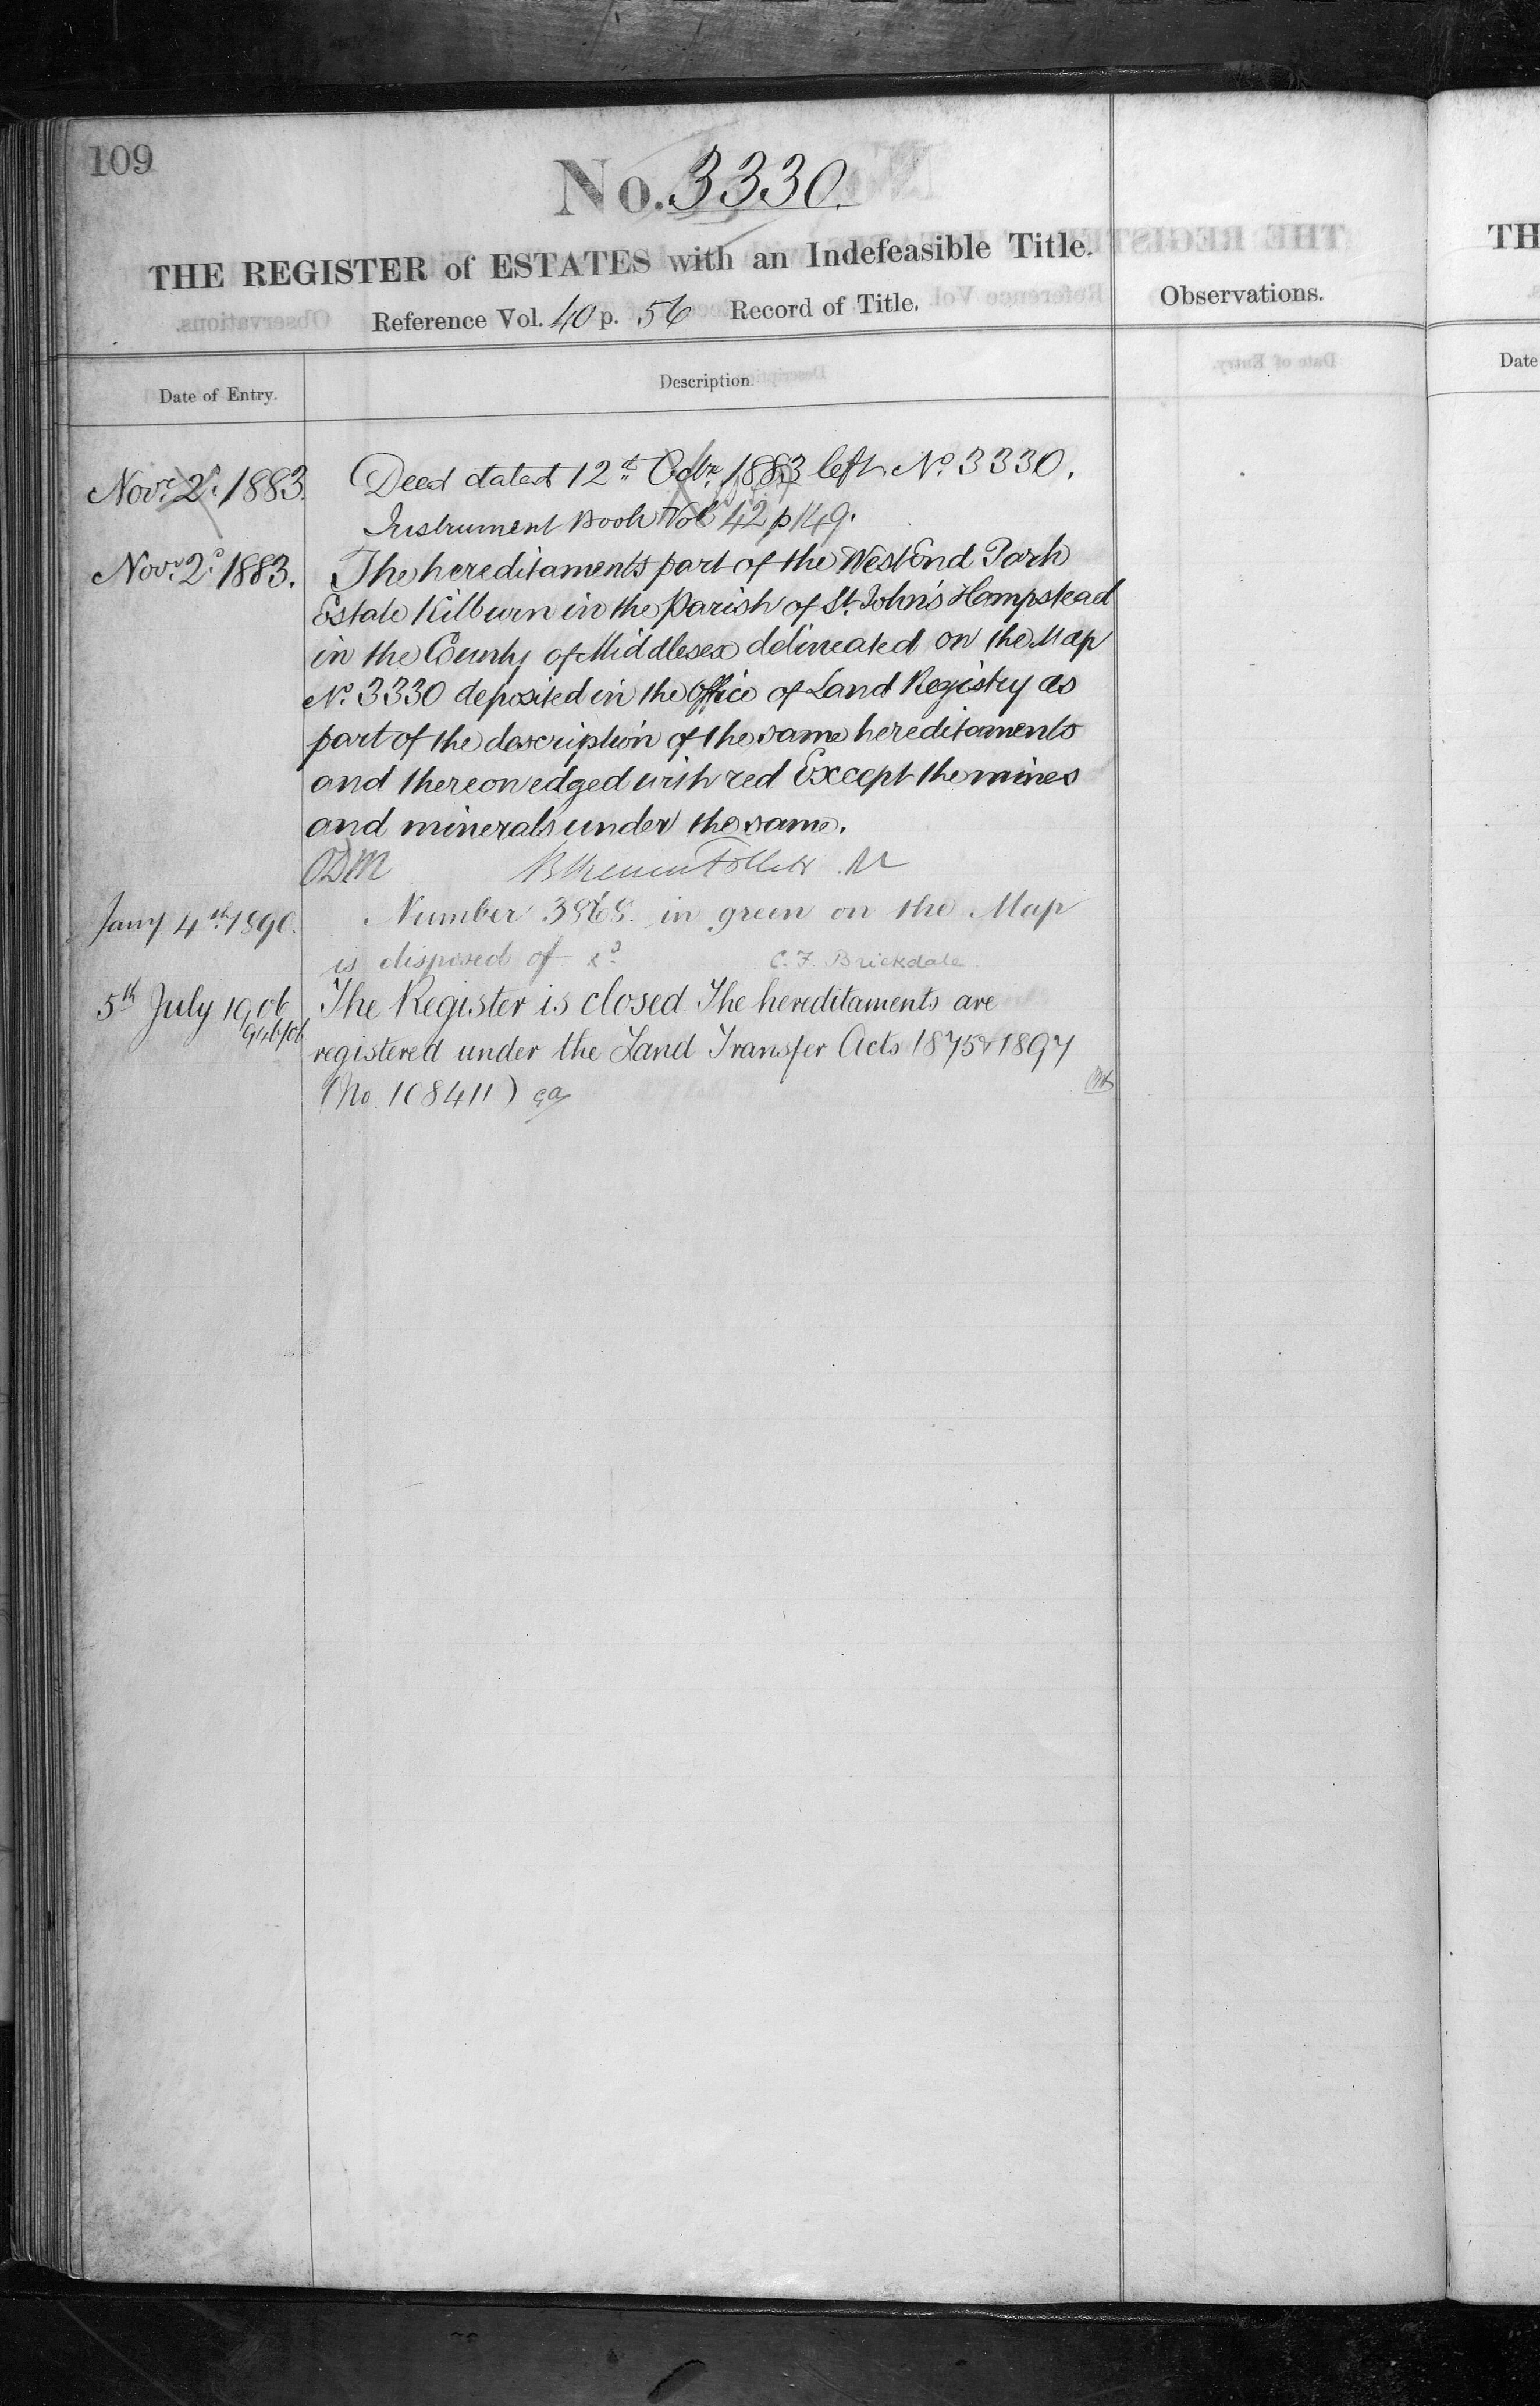 109
No. 3330.
THE REGISTER of ESTATES with an Indefeasible Title.
Reference Vol. 40 p. 56 Record of Title.
Observations.
Date of Entry.
Description.
Novr. 2d. 1883. Deed dated 12th Octr. 1883 left No. 3330.
Instrument Book Vol 42 p 149.
Novr. 2d. 1883. The hereditaments part of the West End Park
Estate Kilburn in the Parish of St. John's Hampstead
in the County of Middlesex delineated on the Map
No. 3330 deposited in the Office of Land Registry as
part of the description of the same hereditaments
and thereon edged with red Except the mines
and minerals under the same.
Follett
Jany. 4th. 1890. Number 3868 in green on the Map
is disposed of C. F. Brickdale
5th July 1906 The Register is closed. The hereditaments are
946/06
registered under the Land Transfer Acts 1875 & 1897
(No. 108411)
TH
Date